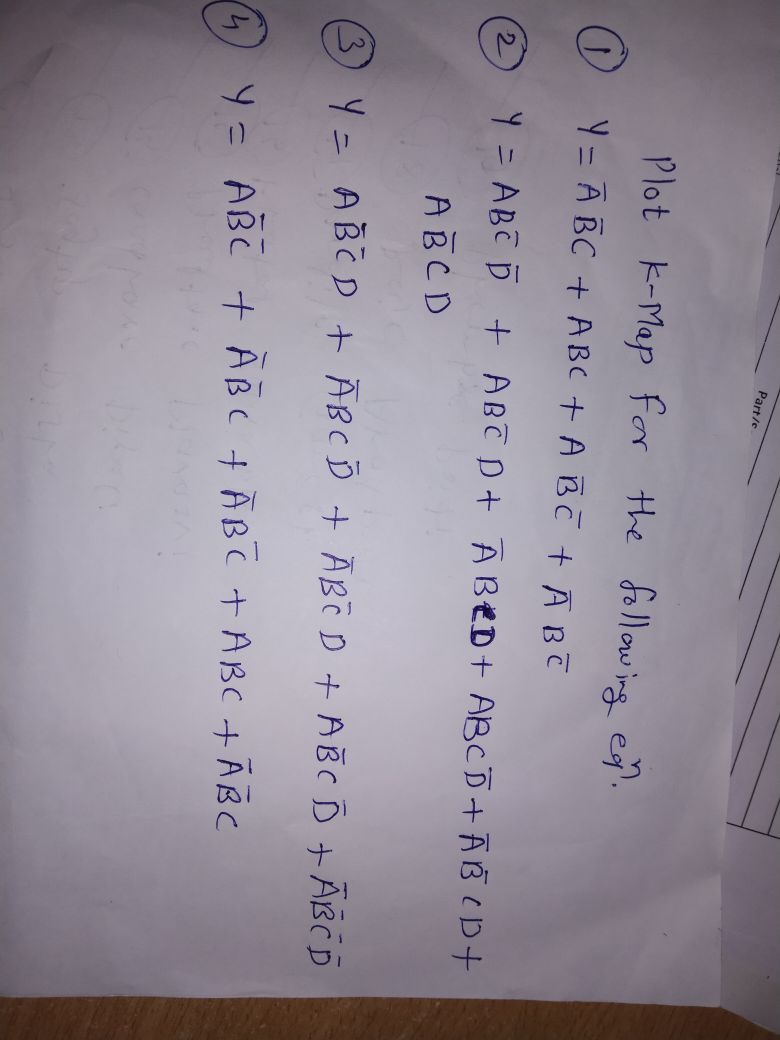 Part/c
Plot K-Map for the following eqⁿ.
① Y = A̅B̅C + ABC + AB̅C̅ + A̅BC̅
② Y = ABC̅D̅ + ABC̅D + A̅BCD + ABCD̅ + A̅B̅CD +
AB̅CD
③ Y = AB̅C̅D + A̅BCD̅ + A̅BC̅D + AB̅CD̅ + A̅B̅C̅D̅
④ Y = AB̅C̅ + A̅B̅C + A̅BC̅ + ABC + A̅B̅C